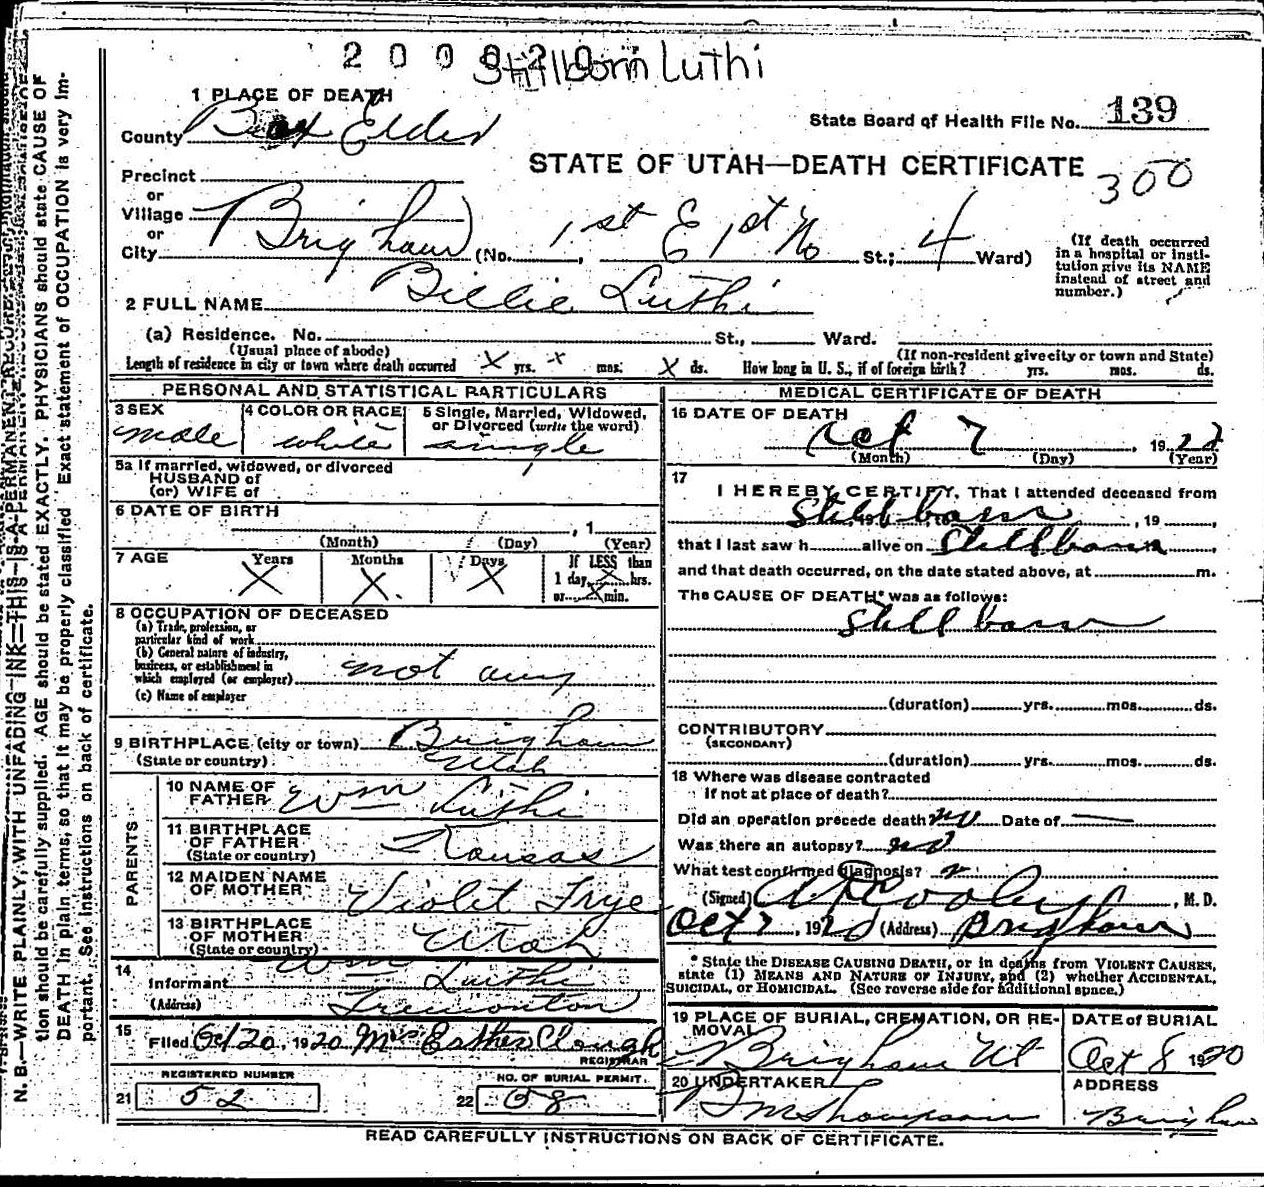 2 0 0 0 2 0
Stillborn Luthi
1 PLACE OF DEATH
County Box Elder
State Board of Health File No. 139
STATE OF UTAH—DEATH CERTIFICATE
300
Precinct
or
Village
or
City Brigham (No. 1st E 1st No St.; 4 Ward)
(If death occurred
in a hospital or insti-
tution give its NAME
instead of street and
number.)
2 FULL NAME Billie Luthi
(a) Residence. No. St., Ward.
(Usual place of abode) (If non-resident give city or town and State)
Length of residence in city or town where death occurred X yrs. X mos. X ds. How long in U. S., if of foreign birth? yrs. mos. ds.
PERSONAL AND STATISTICAL PARTICULARS
3 SEX
male
4 COLOR OR RACE
white
5 Single, Married, Widowed,
or Divorced (write the word)
single
5a If married, widowed, or divorced
HUSBAND of
(or) WIFE of
6 DATE OF BIRTH
, 1
(Month) (Day) (Year)
7 AGE
Years Months Days If LESS than
X X X 1 day, X hrs.
or X min.
8 OCCUPATION OF DECEASED
(a) Trade, profession, or
particular kind of work
(b) General nature of industry,
business, or establishment in
which employed (or employer) not any
(c) Name of employer
9 BIRTHPLACE (city or town) Brigham
(State or country) Utah
PARENTS
10 NAME OF
FATHER Wm Luthi
11 BIRTHPLACE
OF FATHER Kansas
(State or country)
12 MAIDEN NAME
OF MOTHER Violet Frye
13 BIRTHPLACE
OF MOTHER Utah
(State or country)
14
Informant Wm Luthi
(Address) Tremonton
15
Filed Oct 20, 1920 Mrs Esther Clough
REGISTRAR
REGISTERED NUMBER
21 52
NO. OF BURIAL PERMIT.
22 58
MEDICAL CERTIFICATE OF DEATH
16 DATE OF DEATH
Oct 7, 1920
(Month) (Day) (Year)
17
I HEREBY CERTIFY, That I attended deceased from
Still born, 19
that I last saw h alive on Still born
and that death occurred, on the date stated above, at m.
The CAUSE OF DEATH* was as follows:
Still born
(duration) yrs. mos. ds.
CONTRIBUTORY
(SECONDARY)
(duration) yrs. mos. ds.
18 Where was disease contracted
if not at place of death?
Did an operation precede death no Date of —
Was there an autopsy? no
What test confirmed diagnosis?
(Signed) , M. D.
Oct 7, 1920 (Address) Brigham
* State the DISEASE CAUSING DEATH, or in deaths from VIOLENT CAUSES,
state (1) MEANS AND NATURE OF INJURY, and (2) whether ACCIDENTAL,
SUICIDAL, or HOMICIDAL. (See reverse side for additional space.)
19 PLACE OF BURIAL, CREMATION, OR RE-
MOVAL
Brigham Ut
DATE of BURIAL
Oct 8 1920
20 UNDERTAKER
Thompson
ADDRESS
Brigham
READ CAREFULLY INSTRUCTIONS ON BACK OF CERTIFICATE.
N. B.—WRITE PLAINLY, WITH UNFADING INK—THIS IS A PERMANENT RECORD.
tion should be carefully supplied. AGE should be stated EXACTLY. PHYSICIANS should state CAUSE OF
DEATH in plain terms, so that it may be properly classified. Exact statement of OCCUPATION is very im-
portant. See instructions on back of certificate.